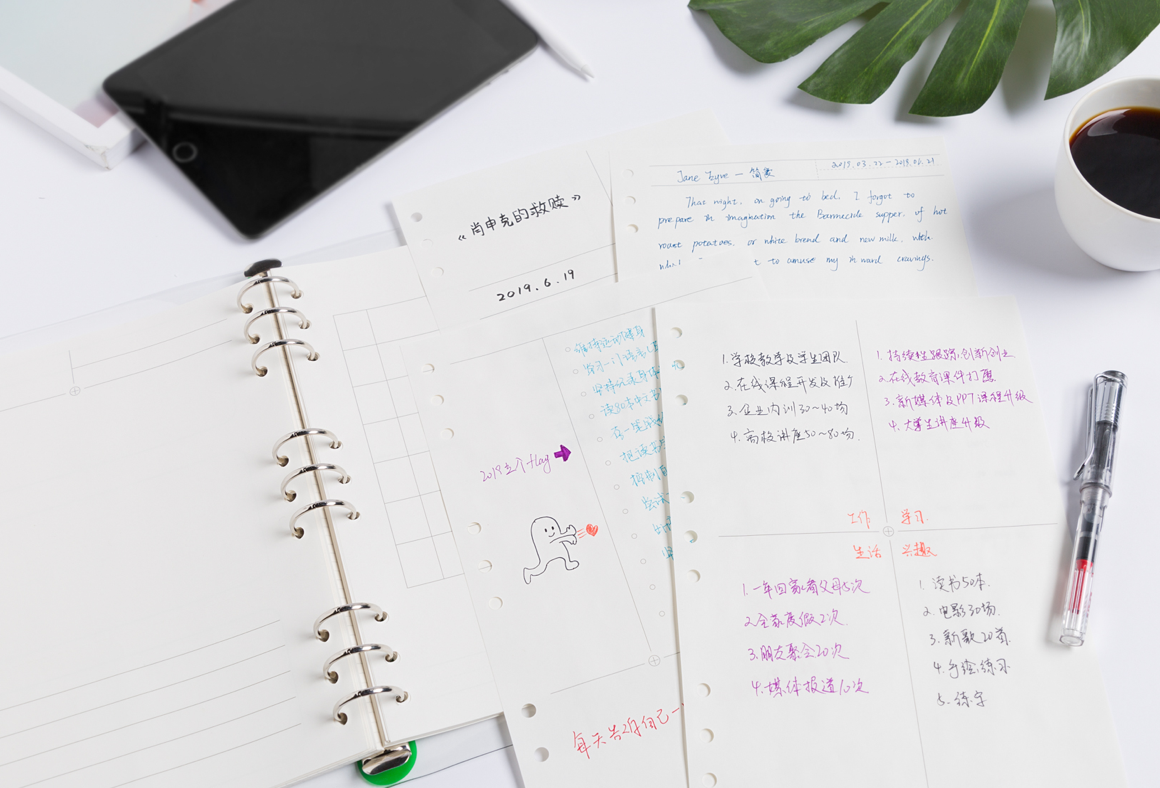 《肖申克的救赎》
2019.6.19
Jane Eyre — 简爱
2019.03.22 — 2019.06.21
That night, on going to bed, I forgot to
prepare in imagination the Barmecide supper, of hot
roast potatoes, or white bread and new milk, with
to amuse my inward cravings.
2019立个flag
保持运动健身
学习一门
坚持
读80本
每天告诉自己一
1.学校教学及学生团队
2.在线课程开发及推广
3.企业内训30~40场
4.高校讲座50~80场
1.持续性锻炼,创新创业
2.在线教育课件打磨
3.新媒体及PPT课程升级
4.大学生讲座升级
工作 学习
生活 兴趣
1.一年回家看父母5次
2.全家度假2次
3.朋友聚会20次
4.媒体报道10次
1.读书50本
2.电影30场
3.新歌20首
4.手绘练习
5.练字